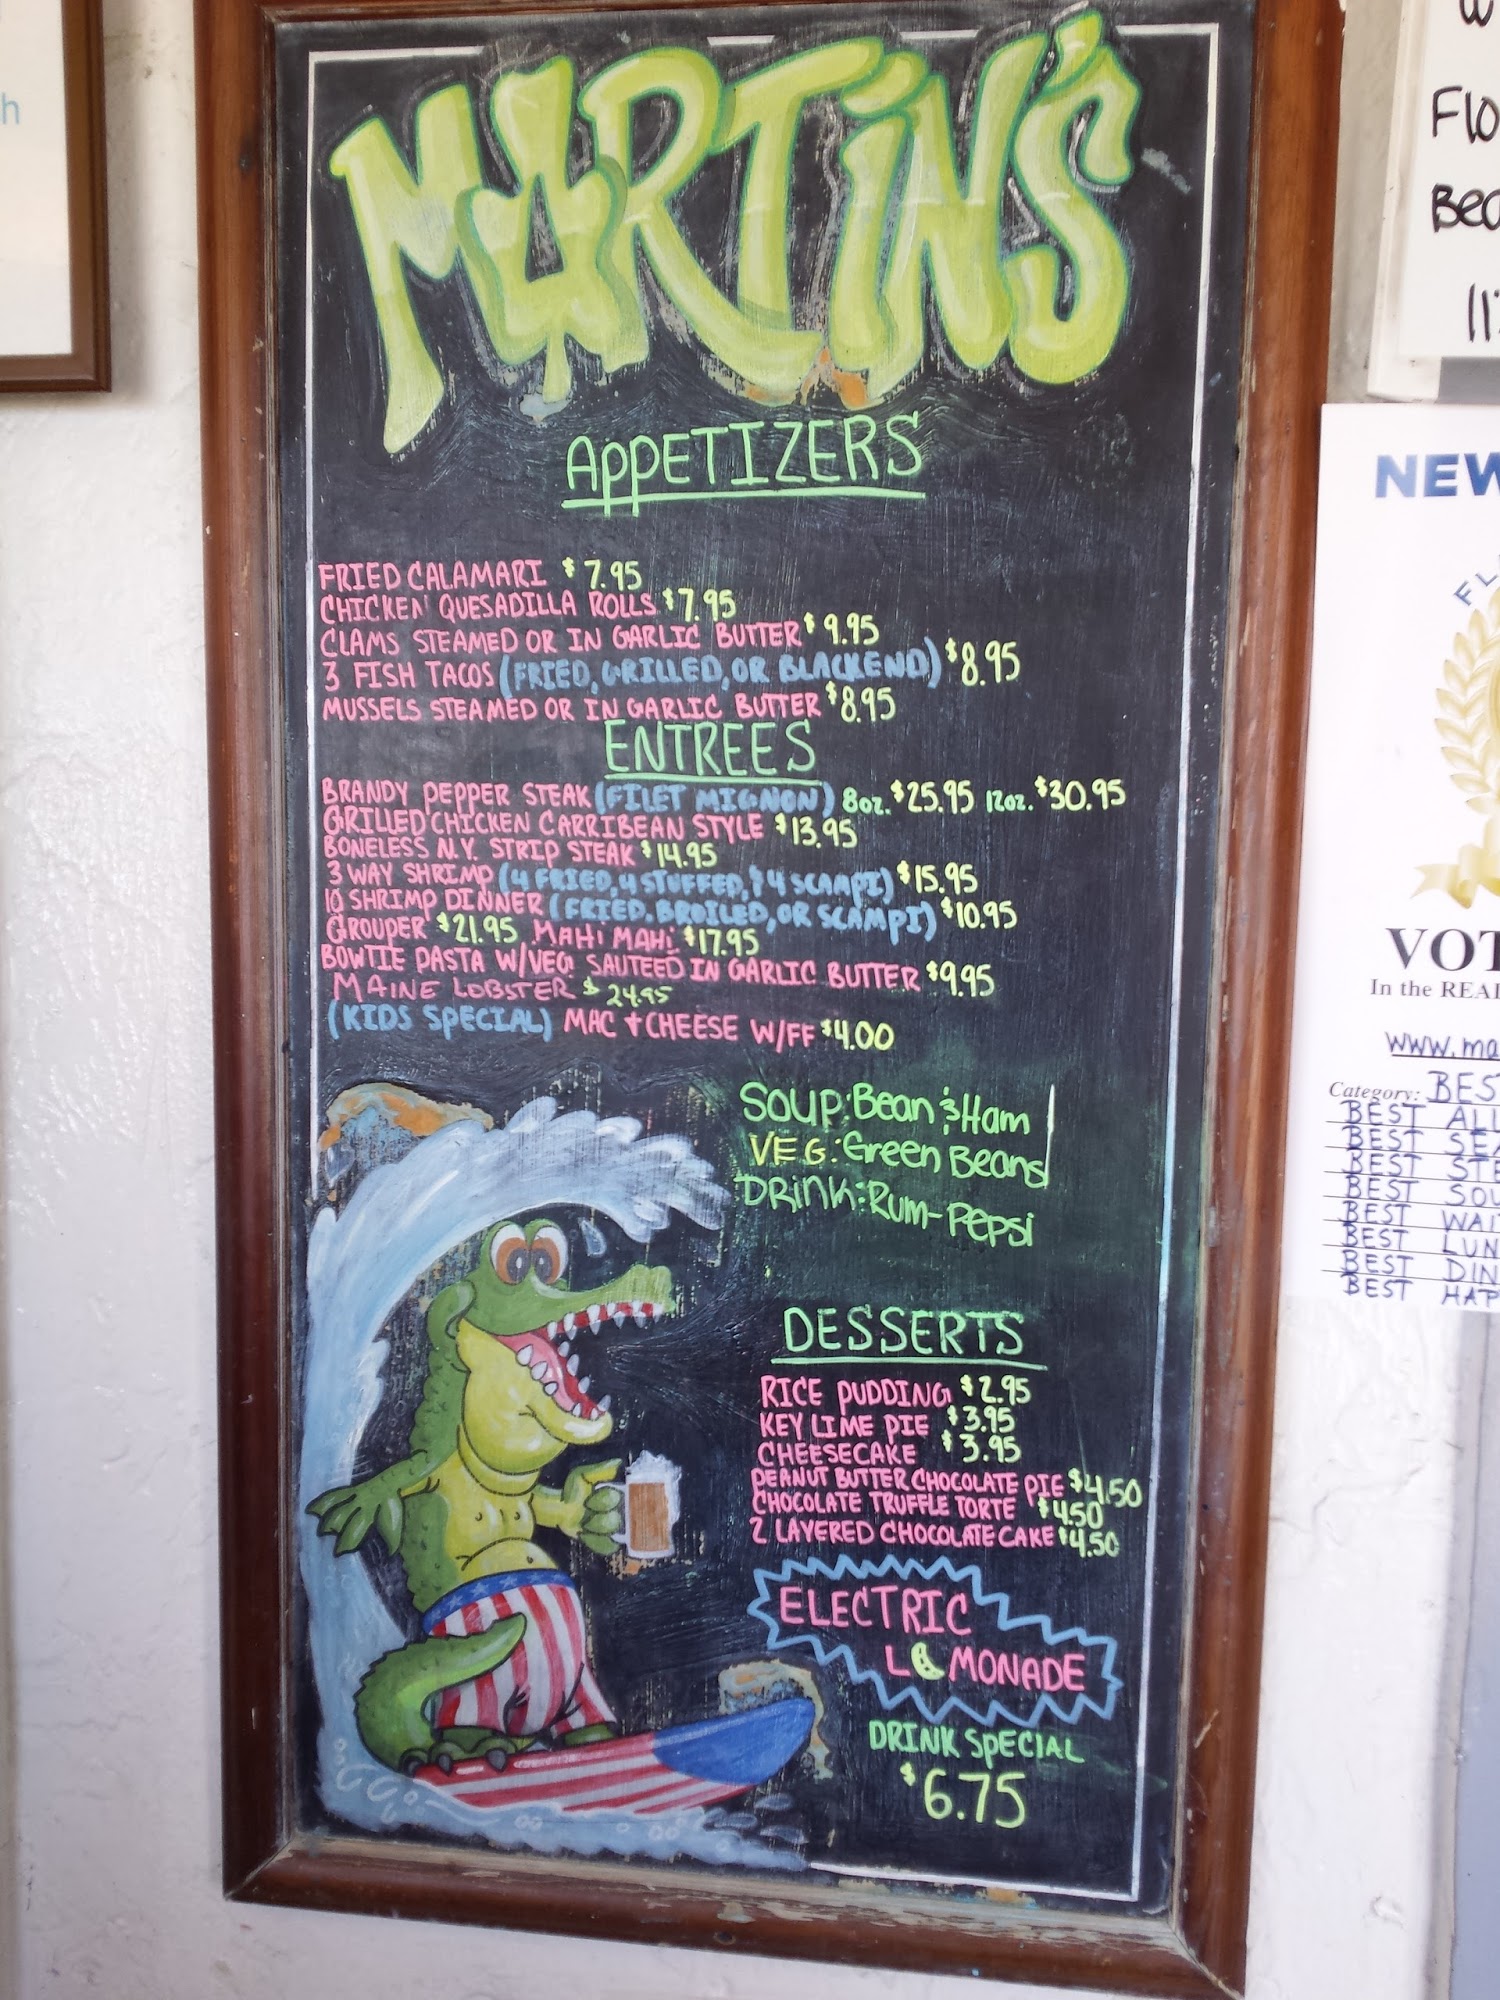 MARTiN'S
APPETIZERS
FRIED CALAMARI $7.95
CHICKEN QUESADILLA ROLLS $7.95
CLAMS STEAMED OR IN GARLIC BUTTER $9.95
3 FISH TACOS (FRIED, GRILLED, OR BLACKEND) $8.95
MUSSELS STEAMED OR IN GARLIC BUTTER $8.95
ENTREES
BRANDY PEPPER STEAK (FILET MIGNON) 8oz. $25.95 12oz. $30.95
GRILLED CHICKEN CARRIBEAN STYLE $13.95
BONELESS N.Y. STRIP STEAK $14.95
3 WAY SHRIMP (4 FRIED, 4 STUFFED, & 4 SCAMPI) $15.95
10 SHRIMP DINNER (FRIED, BROILED, OR SCAMPI) $10.95
GROUPER $21.95 MAHI MAHI $17.95
BOWTIE PASTA W/VEG SAUTEED IN GARLIC BUTTER $9.95
MAINE LOBSTER $24.95
(KIDS SPECIAL) MAC + CHEESE W/FF $4.00
SOUP: Bean & Ham
VEG: Green Beans
DRinK: Rum-Pepsi
DESSERTS
RICE PUDDING $2.95
KEY LIME PIE $3.95
CHEESECAKE $3.95
PEANUT BUTTER CHOCOLATE PIE $4.50
CHOCOLATE TRUFFLE TORTE $4.50
2 LAYERED CHOCOLATE CAKE $4.50
ELECTRIC
LEMONADE
DRINK SPECIAL
$6.75
h
FLO
BEC
NEW
FL
VOT
In the REA
www.ma
Category: BES
BEST ALL
BEST SEA
BEST STE
BEST SOU
BEST WAI
BEST LUN
BEST DIN
BEST HAP